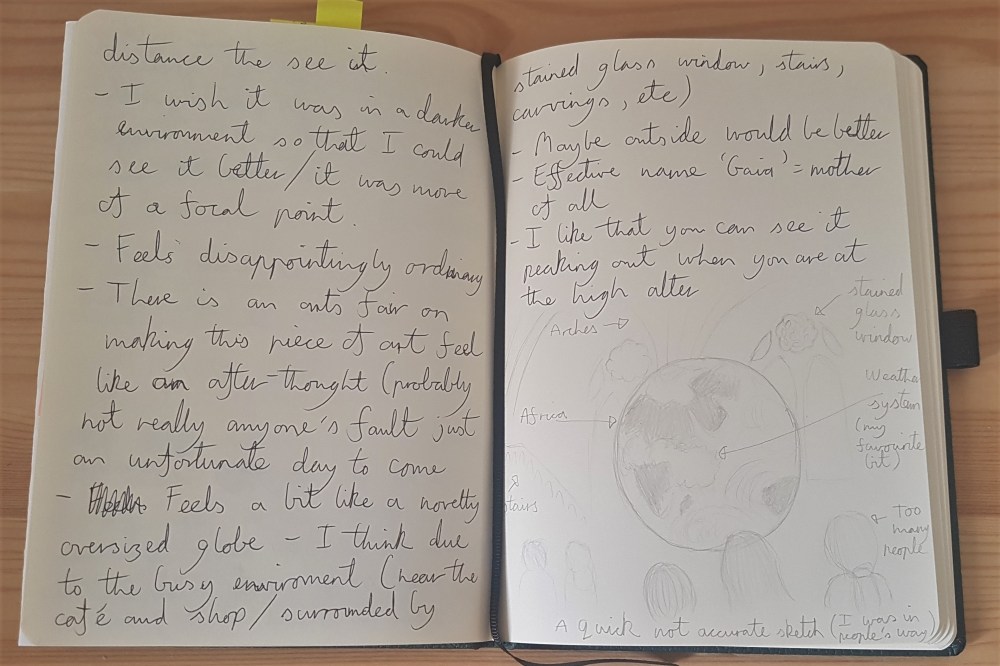 distance the see it.
- I wish it was in a darker
environment so that I could
see it better / it was more
of a focal point.
- Feels disappointingly ordinary
- There is an arts fair on
making this piece of art feel
like an after-thought (probably
not really anyone's fault just
an unfortunate day to come
- Feels a bit like a novelty
oversized globe - I think due
to the busy enviroment (near the
café and shop / surrounded by
stained glass window, stairs,
carvings, etc)
- Maybe outside would be better
- Effective name 'Gaia' = mother
of all
- I like that you can see it
peaking out when you are at
the high alter
Arches
stained
glass
window
Africa
Weather
system
(my
favourite
bit)
stairs
Too
many
people
A quick not accurate sketch (I was in
people's way)